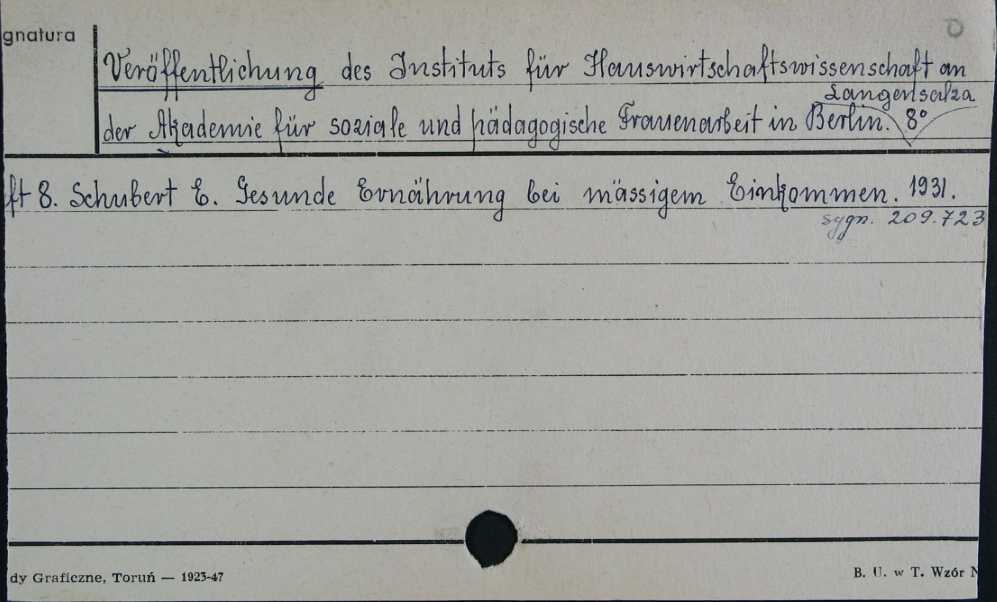 gnatura
Veröffentlichung des Instituts für Hauswirtschaftswissenschaft an
Langensalza
der Akademie für soziale und pädagogische Frauenarbeit in Berlin. 8°
ft 8. Schubert E. Gesunde Ernährung bei mässigem Einkommen. 1931.
sygn. 209.723
dy Graficzne, Toruń — 1923-47
B. U. w T. Wzór N